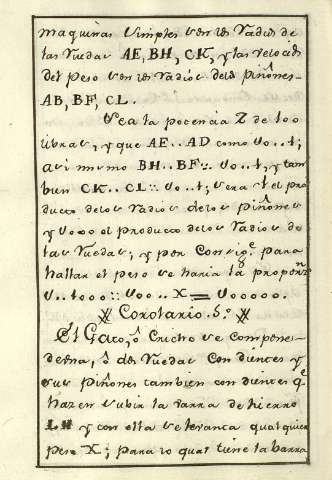 maquinas simples son los radios de
las ruedas AE, BH, CK, y las velocid.
del peso son los radios delos piñones
AB, BF, CL.
Sea la potencia Z de 100
libras, y que AE.. AD como 10..1;
asi mismo BH.. BF:: 10..1, y tam
bien CK.. CL:: 10..1; sera 1 el pro
ducto delos radios delos piñones
y 1000 el producto delos radios de
las ruedas; y por consig.e para
hallar el peso se haria la propor.n
1..1000 :: 100.. X = 100000.
Corolario. 5.º
El Gato, ô Cricho se compone
de una, ô dos ruedas con dientes y
sus piñones tambien con dientes q.e
hazen subir la barra de hierro
LH y con ella se levanta qualquier
peso X; para lo qual tiene la barra